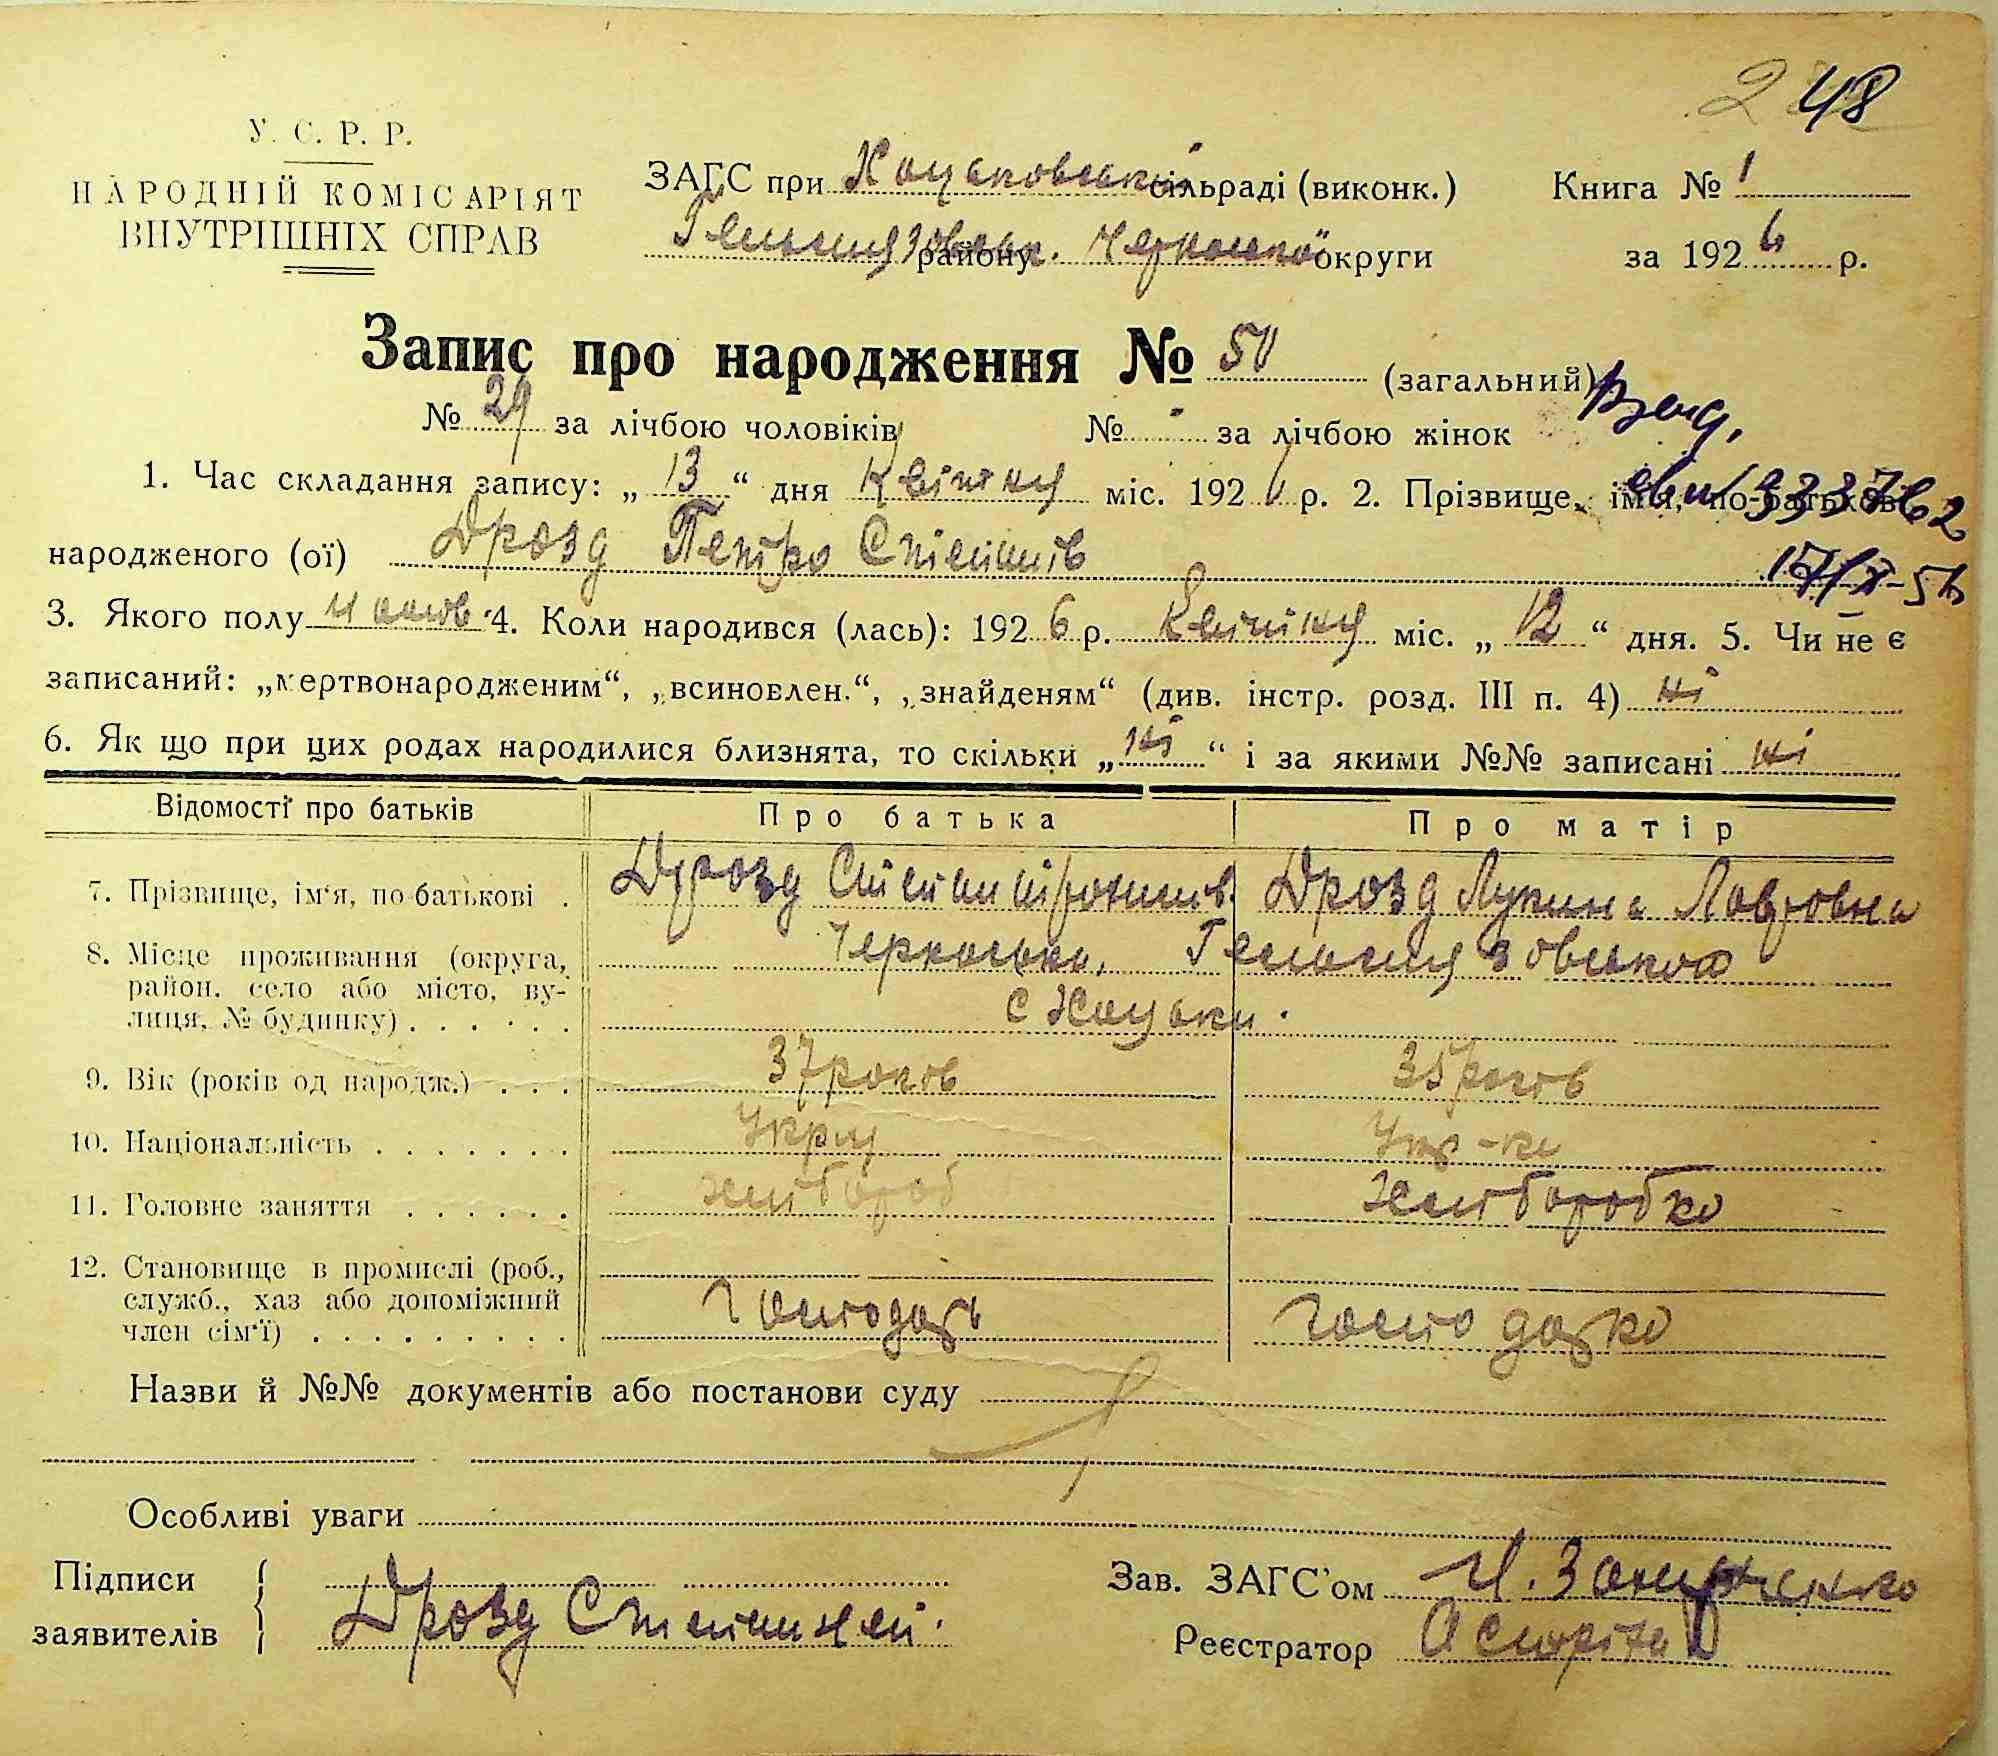 48
У. С. Р. Р.
НАРОДНІЙ КОМІСАРІЯТ
ВНУТРІШНІХ СПРАВ
ЗАГС при Хоцьковській сільраді (виконк.) Книга № 1
Гельмязовськ. району Черкаської округи за 1926 р.
Запис про народження № 50 (загальний)
№ 29 за лічбою чоловіків № - за лічбою жінок
1. Час складання запису: „13“ дня Квітня міс. 1926 р. 2. Прізвище, ім'я, по-батькові
народженого (ої) Дрозд Петро Степанів
3. Якого полу чолов. 4. Коли народився (лась): 1926 р. Квітня міс. „12“ дня. 5. Чи не є
записаний: „мертвонародженим“, „всиновлен.“, „знайденям“ (див. інстр. розд. III п. 4) ні
6. Як що при цих родах народилися близнята, то скільки „ні“ і за якими №№ записані ні
Відомості про батьків Про батька Про матір
7. Прізвище, ім'я, по-батькові . Дрозд Степан Дрозд Лукина Лавровна
8. Місце проживання (округа, район, село або місто, вулиця, № будинку) . . . . . . Черкаська, Гельмязовського
с Хоцьки.
9. Вік (років од народж.) . . . 37 років 35 років
10. Національність . . . . . . . Укр-ка
11. Головне заняття . . . . . . хлібороб хліборобка
12. Становище в промислі (роб.,
служб., хаз або допоміжний
член сім'ї) . . . . . . . . . Господарь господарка
Назви й №№ документів або постанови суду
Особливі уваги
Підписи заявителів Дрозд Степаний. Зав. ЗАГС'ом
Реєстратор